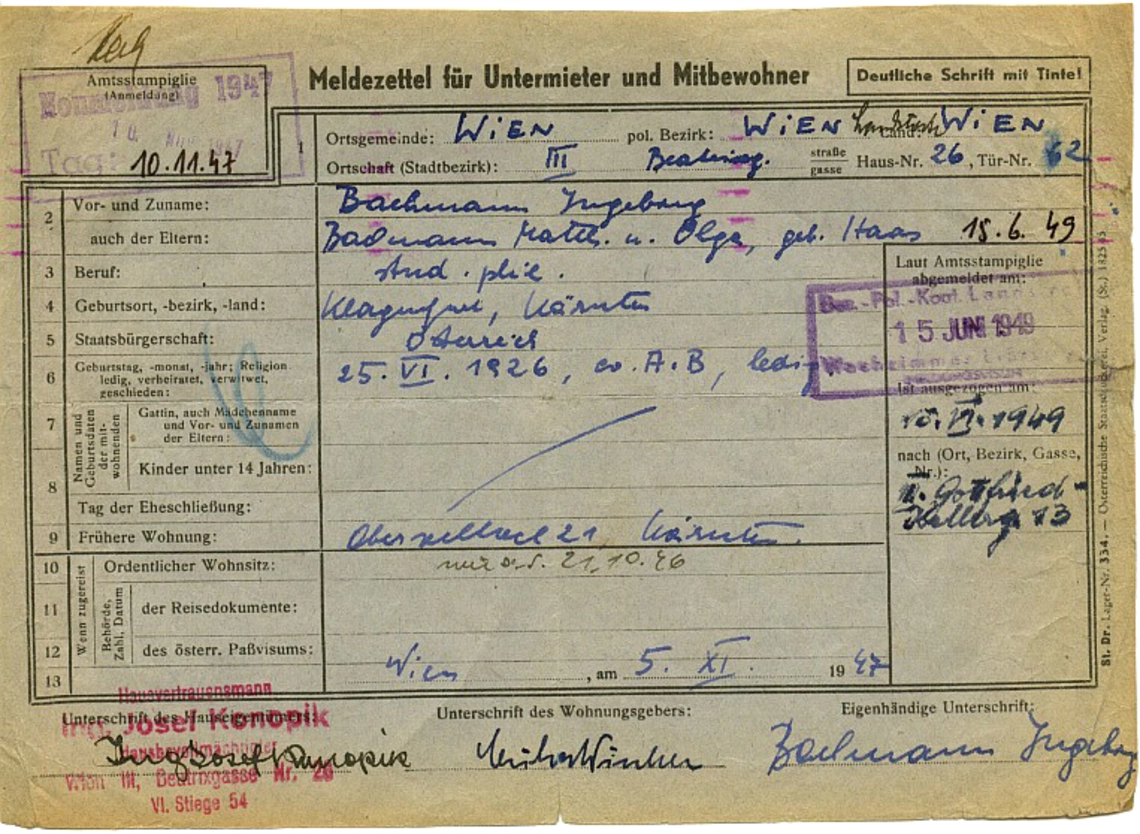 Amtsstampiglie
(Anmeldung)
1947
Tag: 10.11.47
Meldezettel für Untermieter und Mitbewohner
Deutliche Schrift mit Tinte!
1 Ortsgemeinde: WIEN pol. Bezirk: WIEN Land: WIEN
Ortschaft (Stadtbezirk): III Beatrixg. straße gasse Haus-Nr. 26, Tür-Nr. 62
2 Vor- und Zuname: Bachmann Ingeborg
auch der Eltern: Bachmann Matth. u. Olga, geb. Haas 15.6.49
3 Beruf: stud. phil.
4 Geburtsort, -bezirk, -land: Klagenfurt, Kärnten
5 Staatsbürgerschaft: Österreich
6 Geburtstag, -monat, -jahr; Religion
ledig, verheiratet, verwitwet,
geschieden: 25. VI. 1926, ev. A.B, ledig
Laut Amtsstampiglie
abgemeldet am:
Bez.-Pol.-Koat.
15 JUNI 1949
Wachzimmer
Ist ausgezogen am:
10. VI. 1949
nach (Ort, Bezirk, Gasse,
Nr.):
Gottfried-
Kellerg 13
Namen und Geburtsdaten der mit-wohnenden
7 Gattin, auch Mädchenname
und Vor- und Zunamen
der Eltern:
8 Kinder unter 14 Jahren:
Tag der Eheschließung:
9 Frühere Wohnung: Obervellach 21, Kärnten.
Wenn zugereist
10 Ordentlicher Wohnsitz: 21.10.46
Behörde, Zahl, Datum
11 der Reisedokumente:
12 des österr. Paßvisums:
13 Wien, am 5. XI. 1947
St. Dr. Lager-Nr. 334. — Österreichische Staatsdruckerei, Verlag. (St.)
Unterschrift des Hauseigentümers:
Unterschrift des Wohnungsgebers:
Eigenhändige Unterschrift:
Hausvertrauensmann
Ing. Josef Konopik
Hausbevollmächtigter
Wien III, Beatrixgasse Nr. 26
VI. Stiege 54
Ing Josef Konopik
Bachmann Ingeborg